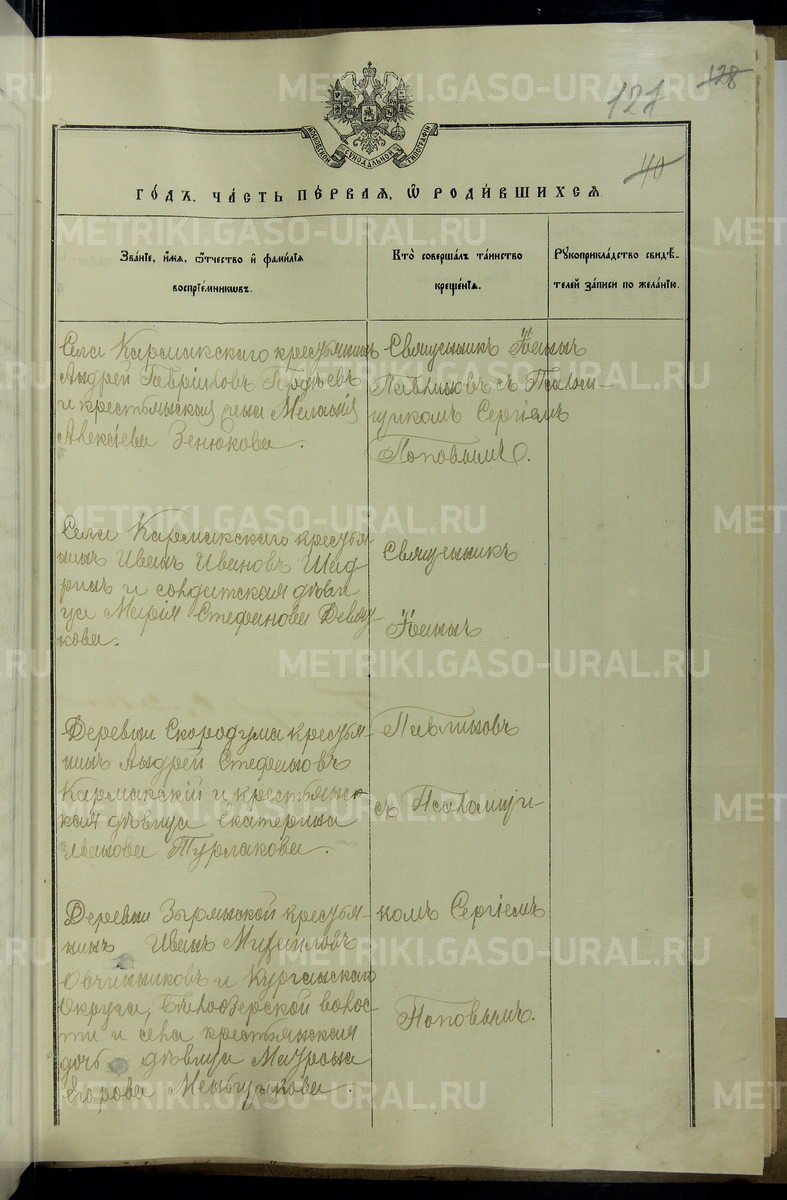 128
127
МОСКОВСКОЙ СѴНОДАЛЬНОЙ ТИПОГРАФІИ
40
ГО́ДЪ, ЧА́СТЬ ПЕ́РВАЯ, Ѡ РОДИ́ВШИХСЯ
Зва́нїе, и҆́мя, ѻ҆́тчество и҆ фами́лїя
воспрїе́мникѡвъ.
Кто̀ соверша́лъ та́инство
креще́нїя.
Рꙋкоприкла́дство свидѣ́-
телей за́писи по жела́нїю.
Села Кармакскаго крестьянинъ
Андрей Гавріиловъ Гордѣевъ
и крестьянская жена Меланія
Алексіева Зенюкова.
Священникъ Іоаннъ
Павлиновъ съ Псалом-
щикомъ Сергіемъ
Поповымъ.
Села Кармакскаго крестья
нинъ Иванъ Ивановъ Шад
ринъ и солдатская дѣви
ца Марія Стефанова Девят
кова.
Священникъ
Іоаннъ
Деревни Скородума крестья-
нинъ Андрей Стефановъ
Кармакскій и крестьянс-
кая дѣвица Екатерина
Иванова Турлакова.
Павлиновъ
съ Псаломщи-
Деревни Зырянской крестья-
нинъ Иванъ Михаиловъ
Овчинниковъ и Курганскаго
Округа, Бѣлоозерской волос
ти и села крестьянская
дочь дѣвица Матрона
Егорова Меньщикова.
комъ Сергіемъ
Поповымъ.
METRIKI.GASO-URAL.RU